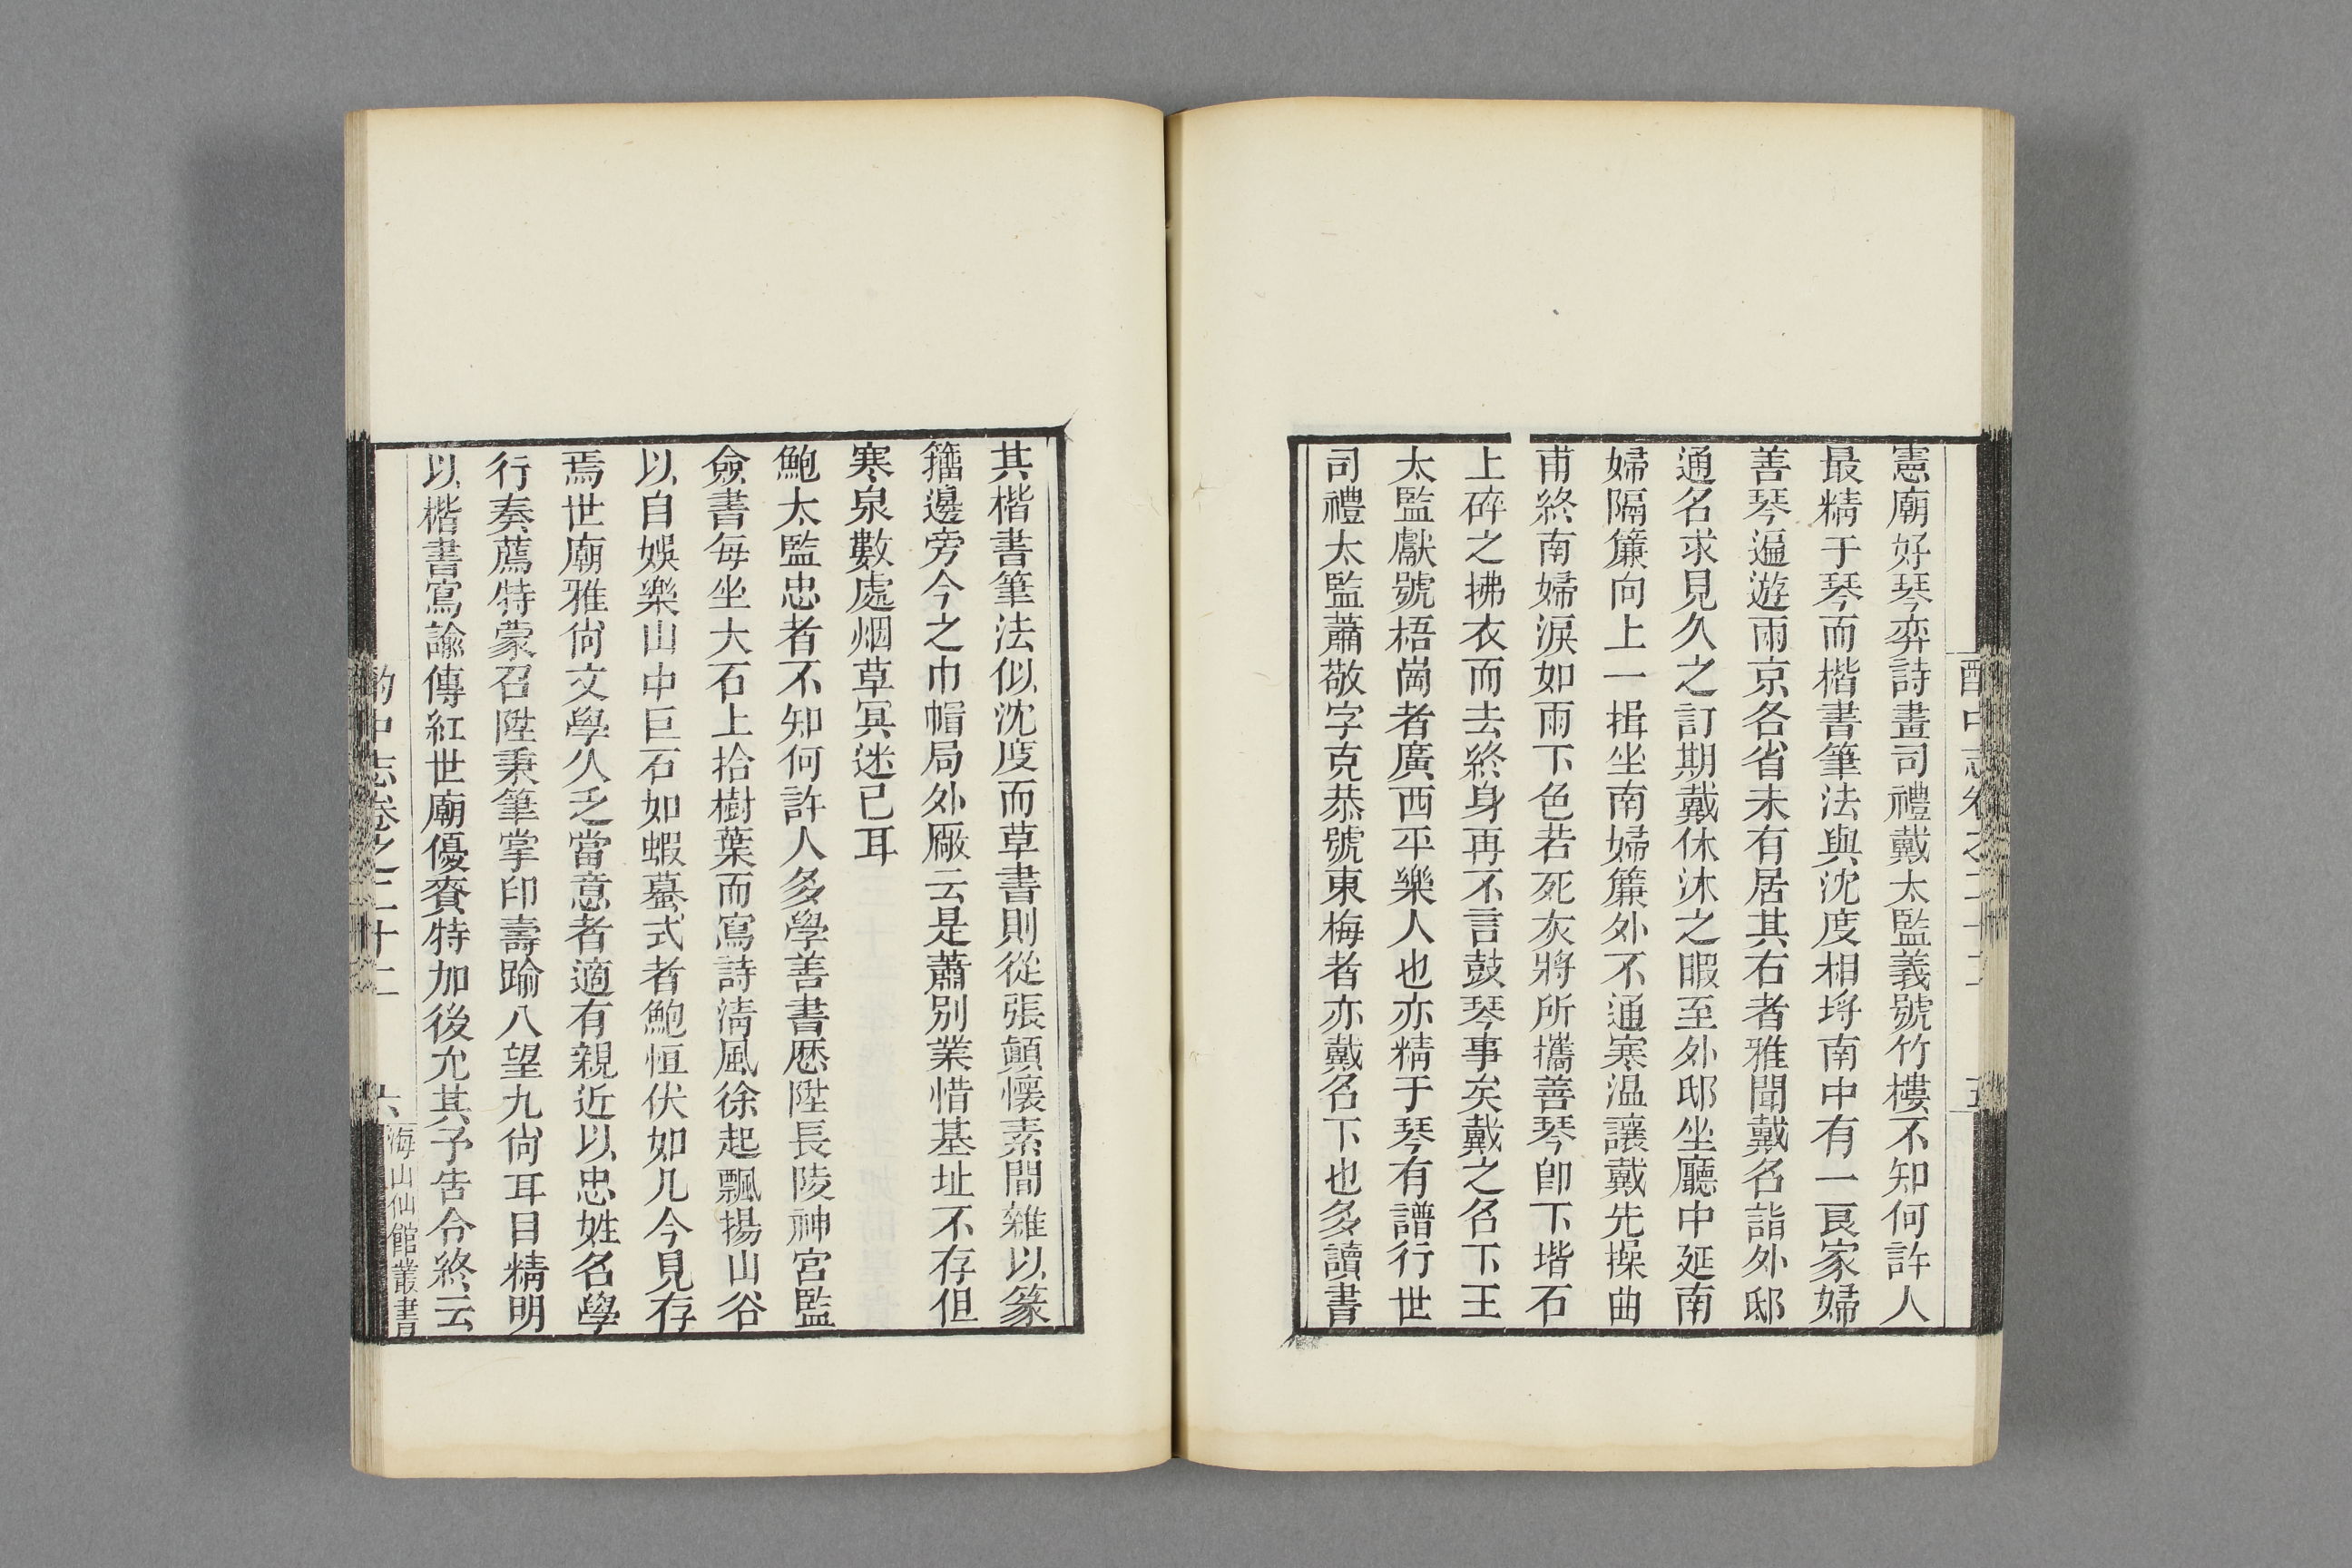 酌中志卷之二十二
五
憲廟好琴弈詩畫司禮戴太監義號竹樓不知何許人
最精于琴而楷書筆法與沈度相埒南中有一良家婦
善琴遍遊兩京各省未有居其右者雅聞戴名詣外邸
通名求見久之訂期戴休沐之暇至外邸坐廳中延南
婦隔簾向上一揖坐南婦簾外不通寒温讓戴先操曲
甫終南婦淚如雨下色若死灰將所攜善琴卽下堦石
上碎之拂衣而去終身再不言鼓琴事矣戴之名下王
太監獻號梧崗者廣西平樂人也亦精于琴有譜行世
司禮太監蕭敬字克恭號東梅者亦戴名下也多讀書
其楷書筆法似沈度而草書則從張顛懷素間雜以篆
籀邊旁今之巾帽局外廠云是蕭别業惜基址不存但
寒泉數處烟草冥迷已耳
鮑太監忠者不知何許人多學善書歷陞長陵神宮監
僉書每坐大石上拾樹葉而寫詩淸風徐起飄揚山谷
以自娛樂山中巨石如蝦蟇式者鮑恒伏如几今見存
焉世廟雅尙文學久乏當意者適有親近以忠姓名學
行奏薦特蒙召陞秉筆掌印壽踰八望九尙耳目精明
以楷書寫諭傳紅世廟優賚特加後允其予告令終云
酌中志卷之二十二
六
海山仙館叢書